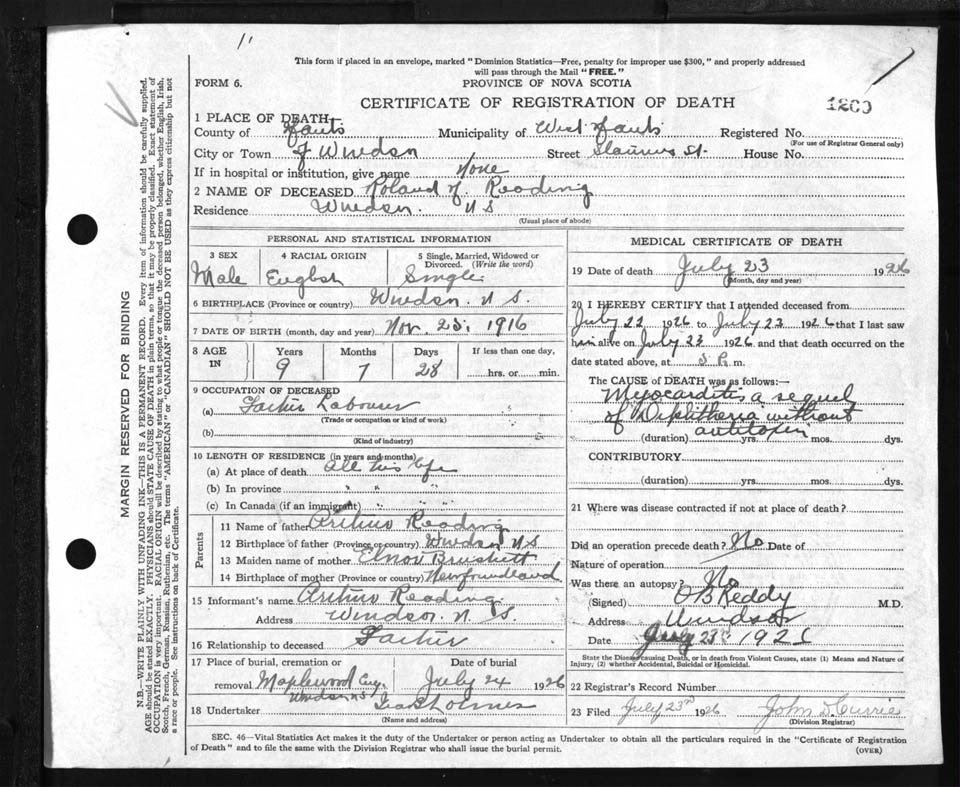 This form if placed in an envelope, marked "Dominion Statistics—Free, penalty for improper use $300," and properly addressed
will pass through the Mail "FREE."
FORM 6.
PROVINCE OF NOVA SCOTIA
CERTIFICATE OF REGISTRATION OF DEATH
1260
1 PLACE OF DEATH
County of Hants Municipality of West Hants Registered No.
(For use of Registrar General only)
City or Town of Windsor Street St. House No.
If in hospital or institution, give name None
2 NAME OF DECEASED Roland Reading
Residence Windsor. N S
(Usual place of abode)
PERSONAL AND STATISTICAL INFORMATION
3 SEX Male
4 RACIAL ORIGIN English
5 Single, Married, Widowed or Divorced. (Write the word) Single
6 BIRTHPLACE (Province or country) Windsor. N S.
7 DATE OF BIRTH (month, day and year) Nov. 25. 1916
8 AGE IN Years 9 Months 7 Days 28 If less than one day, hrs. or min.
9 OCCUPATION OF DECEASED
(a) Labourer
(Trade or occupation or kind of work)
(b)
(Kind of industry)
10 LENGTH OF RESIDENCE (in years and months)
(a) At place of death All his life
(b) In province " " "
(c) In Canada (if an immigrant) " " "
Parents
11 Name of father Arthur Reading
12 Birthplace of father (Province or country) Windsor N S
13 Maiden name of mother
14 Birthplace of mother (Province or country) Newfoundland
15 Informant's name Arthur Reading
Address Windsor. N. S.
16 Relationship to deceased Father
17 Place of burial, cremation or removal Maplewood Cemy. Windsor NS
Date of burial July 24 1926
18 Undertaker Holmes
(Name and address)
MEDICAL CERTIFICATE OF DEATH
19 Date of death July 23 1926
(Month, day and year)
20 I HEREBY CERTIFY that I attended deceased from
July 22 1926 to July 23 1926 that I last saw
him alive on July 23 1926 and that death occurred on the
date stated above, at 5 P. m.
The CAUSE OF DEATH was as follows:—
Myocarditis a sequel
of Diphtheria without
antitoxin
(duration) yrs. mos. dys.
CONTRIBUTORY
(duration) yrs. mos. dys.
21 Where was disease contracted if not at place of death?
Did an operation precede death? No Date of
Nature of operation
Was there an autopsy? No
(Signed) O B Keddy M.D.
Address Windsor
Date July 23rd 1926
State the Disease causing Death, or in death from Violent Causes, state (1) Means and Nature of
Injury; (2) whether Accidental, Suicidal or Homicidal.
22 Registrar's Record Number
23 Filed July 23rd 1926 John D. Currie
(Division Registrar)
SEC. 46—Vital Statistics Act makes it the duty of the Undertaker or person acting as Undertaker to obtain all the particulars required in the "Certificate of Registration
of Death" and to file the same with the Division Registrar who shall issue the burial permit.
(OVER)
MARGIN RESERVED FOR BINDING
N.B.—WRITE PLAINLY WITH UNFADING INK—THIS IS A PERMANENT RECORD. Every item of information should be carefully supplied.
AGE should be stated EXACTLY. PHYSICIANS should STATE CAUSE OF DEATH in plain terms, so that it may be properly classified. Exact statement of
OCCUPATION is very important. RACIAL ORIGIN will be described by stating to what people or tongue the deceased person belonged, whether English, Irish,
Scotch, French, German, Russian, Ruthenian, etc. The terms "AMERICAN" or "CANADIAN" SHOULD NOT BE USED as they express citizenship but not
a race or people. See instructions on back of Certificate.